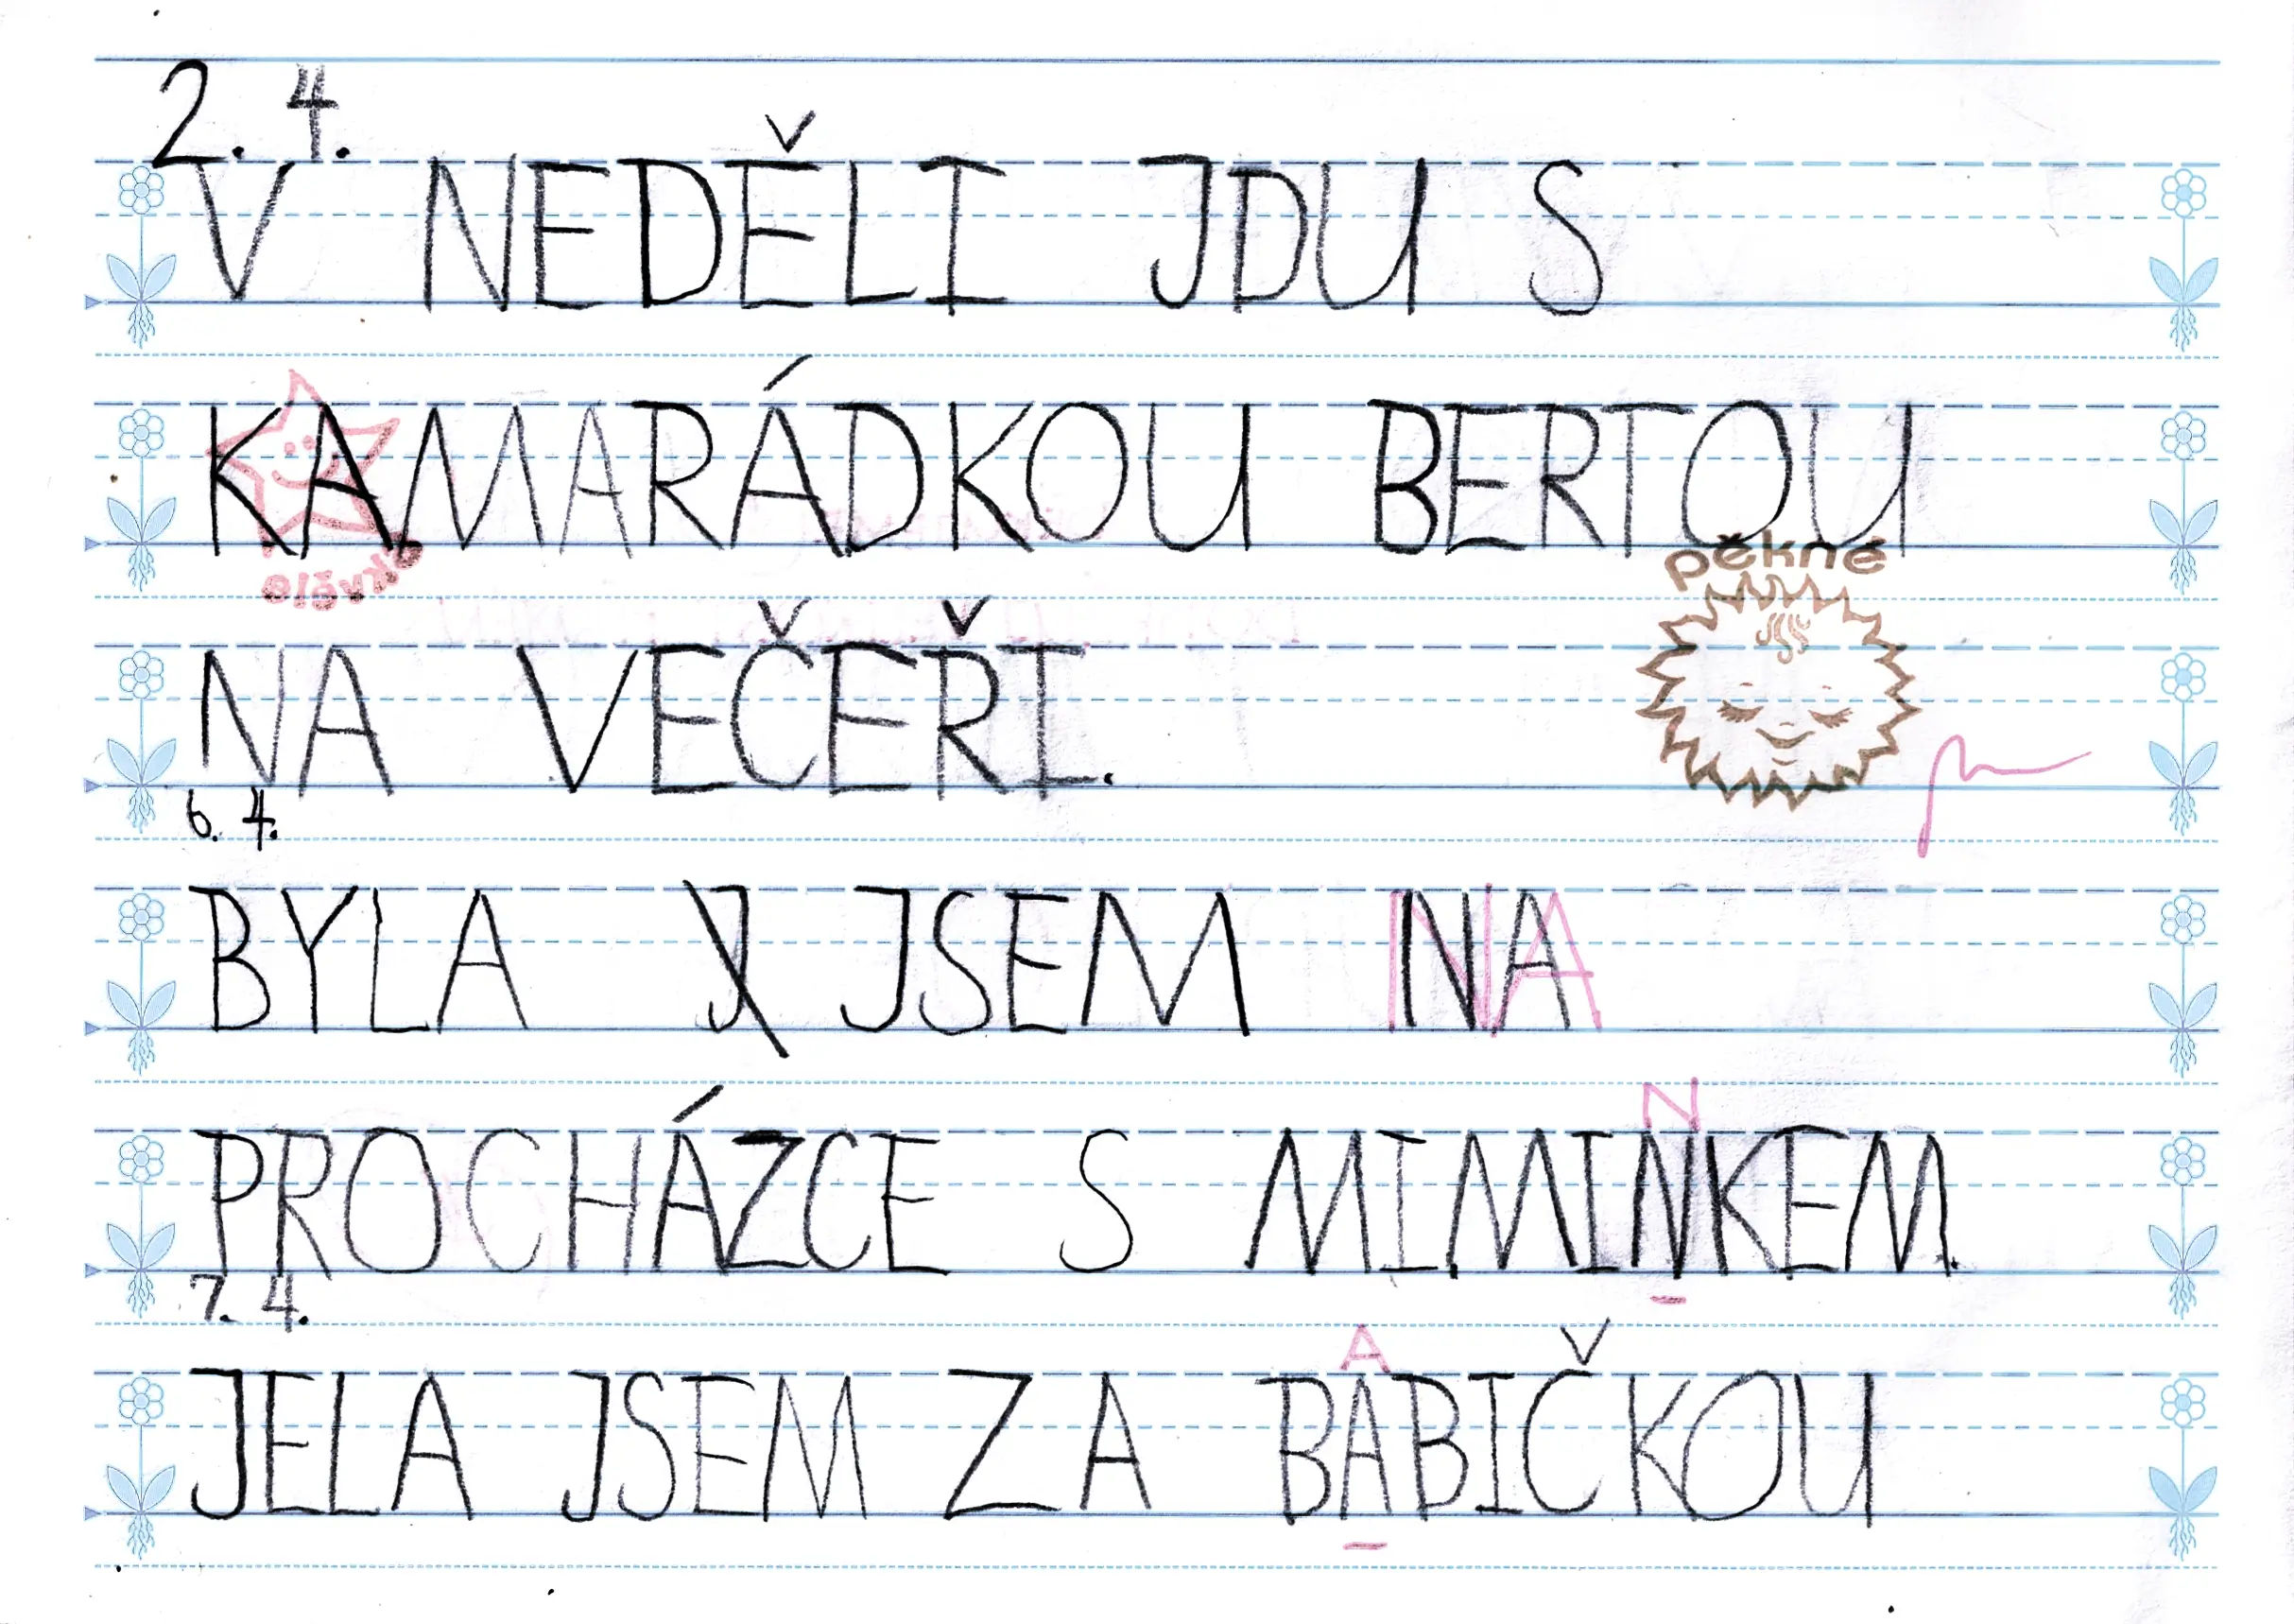 2. 4.
V NEDĚLI JDU S
KAMARÁDKOU BERTOU
skvěle
pěkné
NA VEČEŘI.
6. 4.
BYLA J JSEM NA
N
PROCHÁZCE S MIMINKEM.
7. 4.
A
JELA JSEM ZA BABIČKOU